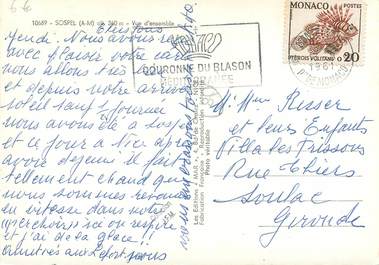 10689 - SOSPEL (A-M) alt. 360 m - Vue d'ensemble
Menton
Jeudi. Nous avons reçu
avec plaisir votre carte
nous allons tous bien
et depuis notre arrivée
soleil sauf 1 journée
nous avons été à Sospel
et ce jour à Nice après
avoir déjeuné il fait
tellement chaud que
nous sommes revenus
en vitesse dans notre
"perchoir" ici on respire
et j'ai de la glace!!
Amitiés
à vous
MONACO
COURONNE DU BLASON
MEDITERRANEE
MONACO POSTES
PTEROIS VOLITANS 0,20
1961
Les Editions "MAR", NICE
Fabrication Française - Reproduction interdite
Photo véritable
M. Mme Risser
et leurs Enfants
Villa les Frissons
Rue Thiers
Soulac
Gironde